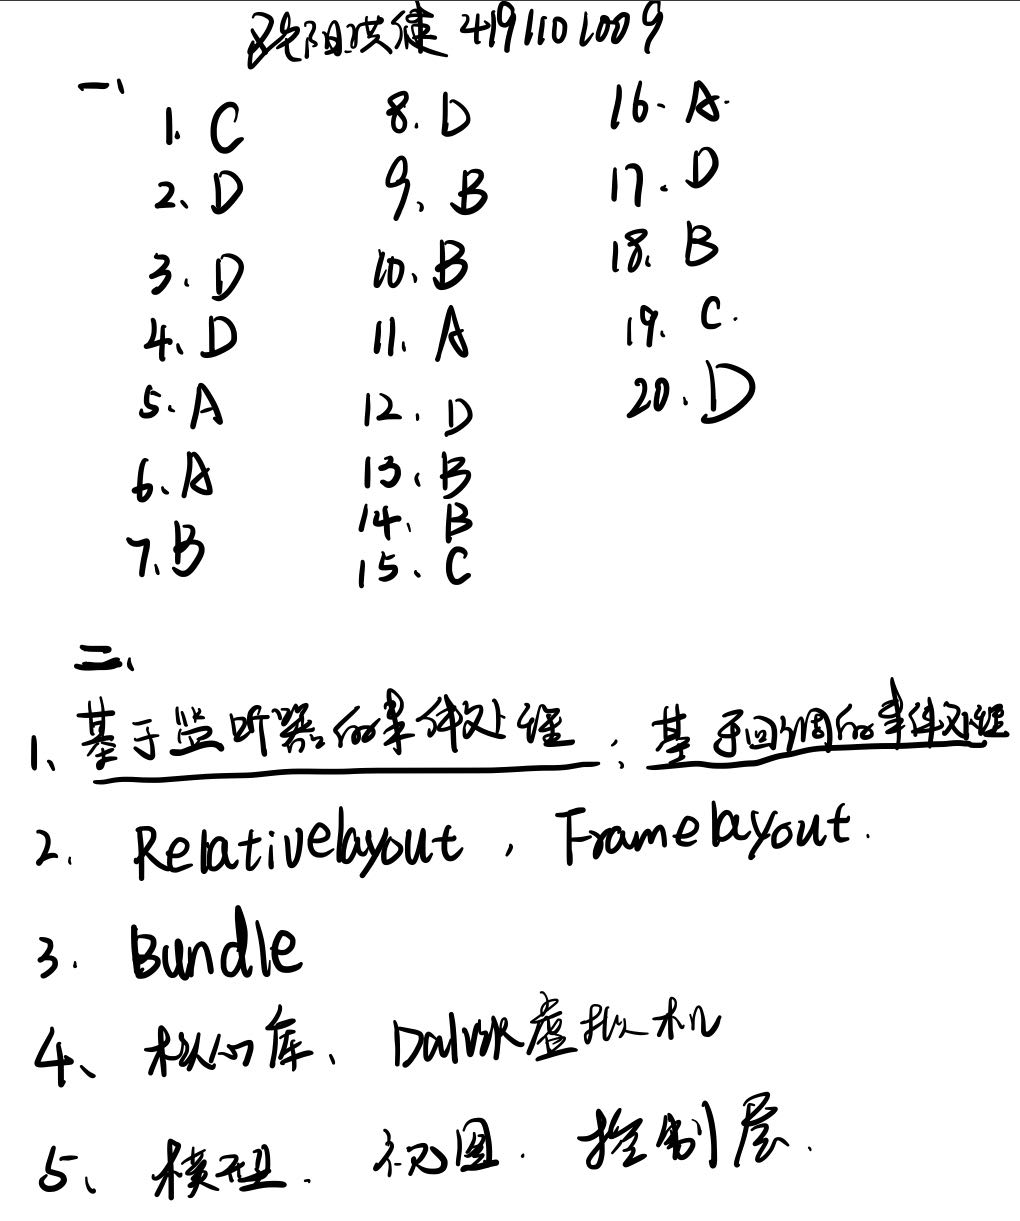 欧阳洪健 4191101009
一、
1. C
2、D
3. D
4、D
5. A
6. A
7. B
8. D
9、B
10、B
11、A
12、D
13、B
14、B
15、C
16. A.
17. D
18. B
19. C.
20. D
二、
1、基于监听器的事件处理 ; 基于回调的事件处理
2. Relativelayout , Framelayout.
3. Bundle
4、核心库、Dalvik虚拟机
5、模型. 视图. 控制层.